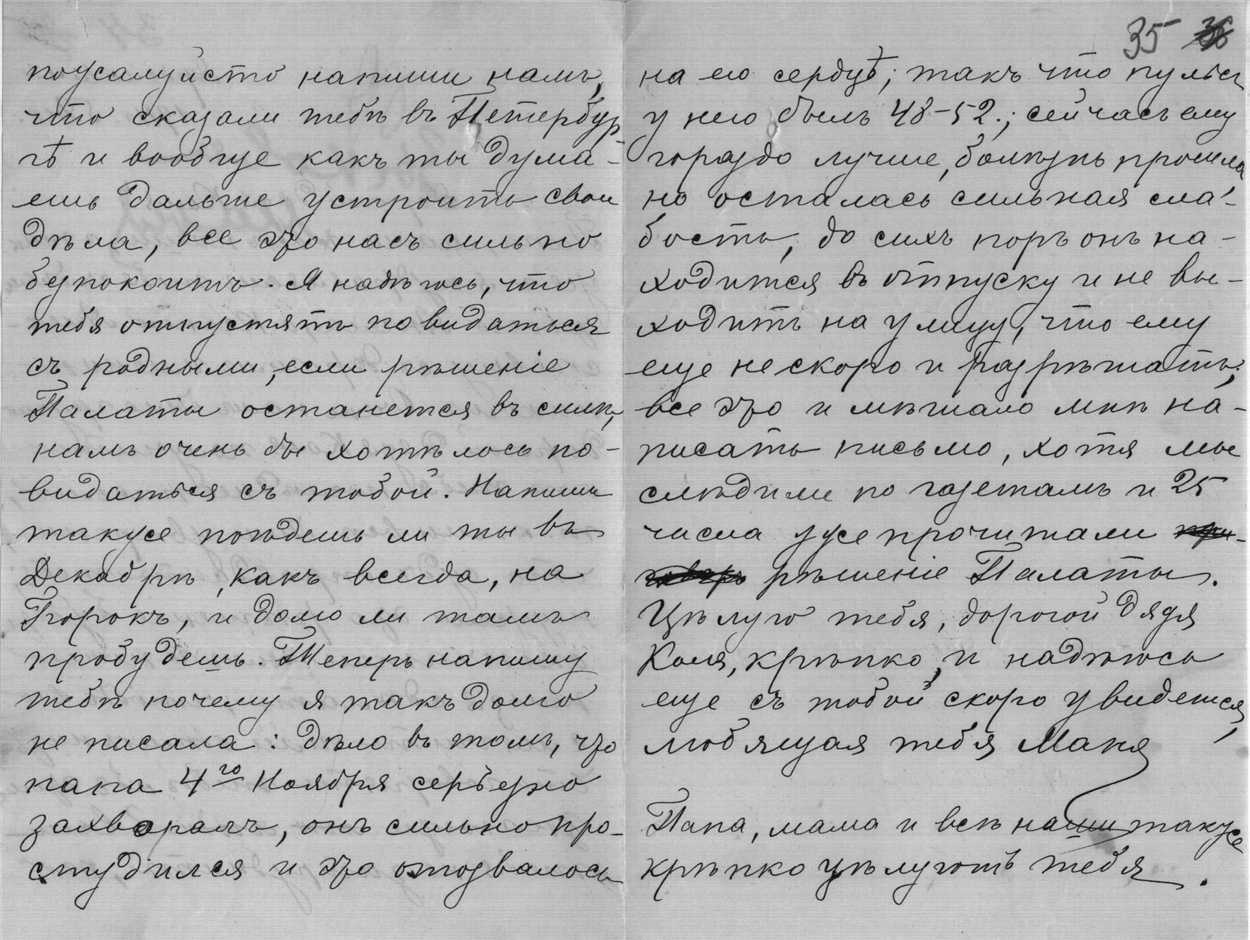 пожалуйста напиши намъ,
что сказали тебѣ въ Петербур
гѣ и вообще какъ ты дума-
ешь дальше устроить свои
дѣла, все это насъ сильно
безпокоитъ. Я надѣюсь, что
тебя отпустятъ повидаться
съ родными, если рѣшеніе
Палаты останется въ силѣ,
намъ очень бы хотѣлось по-
видаться съ тобой. Напиши
также поѣдешь ли ты въ
Декабрѣ, какъ всегда, на
Торокъ, и долго ли тамъ
пробудешь. Теперь напишу
тебѣ почему я такъ долго
не писала: дѣло въ томъ, что
папа 4го Ноября серьезно
захворалъ, онъ сильно про-
студился и это отозвалось
35
на его сердцѣ; такъ что пульсъ
у него былъ 48-52.; сейчасъ ему
гораздо лучше, болѣзнь прошла
но осталась сильная сла-
бость, до сихъ поръ онъ на-
ходится въ отпуску и не вы-
ходитъ на улицу, что ему
еще не скоро и разрѣшатъ;
все это и мѣшало мнѣ на-
писать письмо, хотя мы
слѣдили по газетамъ и 25
числа уже прочитали
рѣшеніе Палаты.
Цѣлую тебя, дорогой дядя
Коля, крѣпко, и надѣюсь
еще съ тобой скоро увидется,
любящая тебя Маня
Папа, мама и всѣ наши также
крѣпко цѣлуютъ тебя.